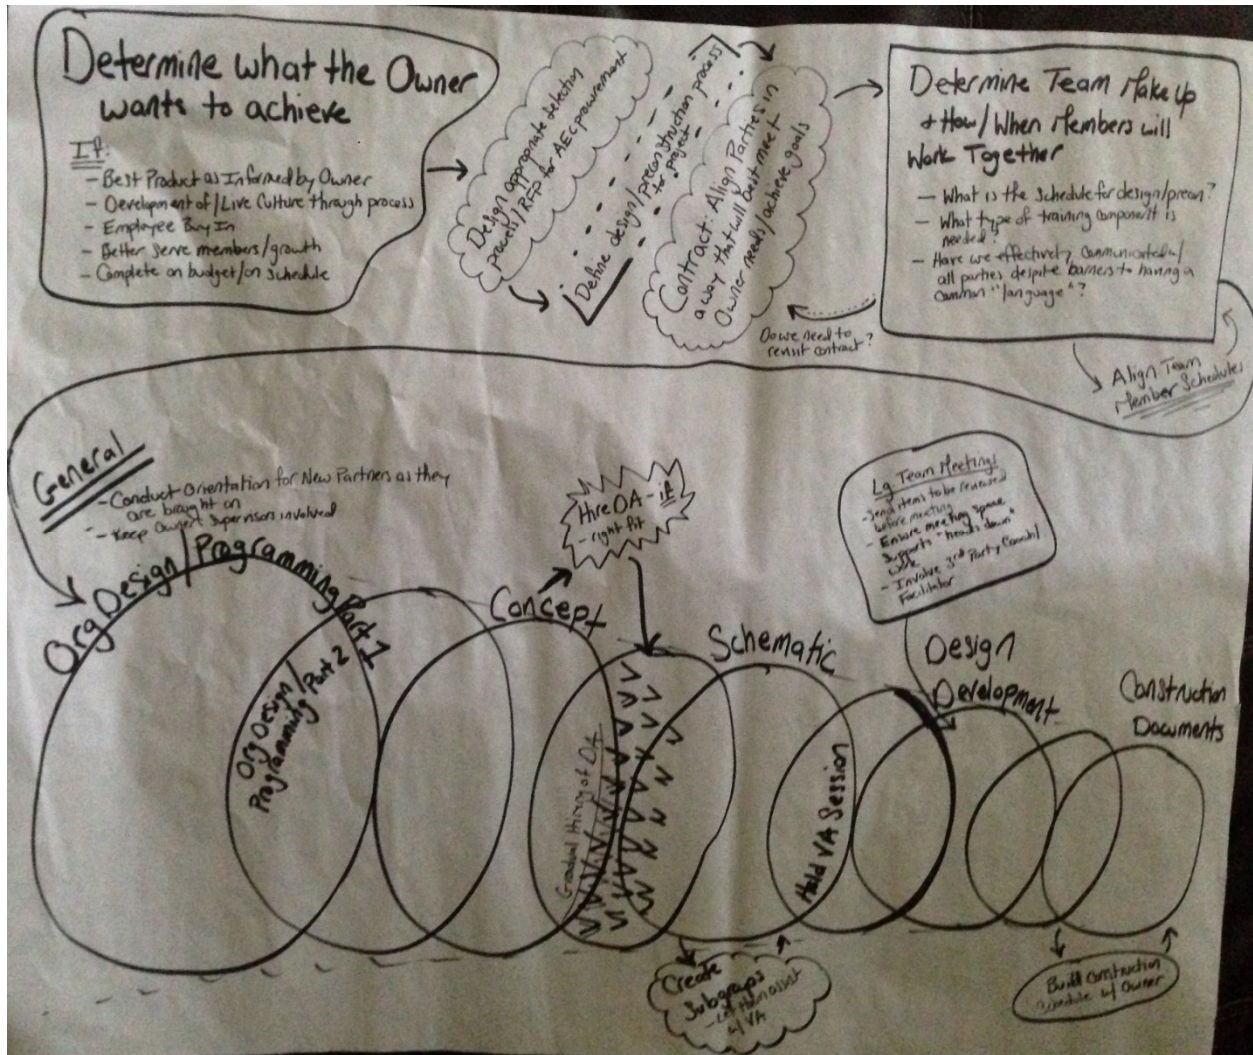 Determine what the Owner
wants to achieve
IF:
- Best Product as Informed by Owner
- Development of/Live Culture through process
- Employee Buy In
- Better serve members/growth
- Complete on budget/on schedule
Design appropriate selection
process/RFP for AEC procurement
Define design/preconstruction process
for project
Contract: Align Parties in
a way that will best meet
Owner needs/achieve goals
Determine Team Make Up
+ How/When Members will
Work Together
- What is the schedule for design/precon?
- What type of training component is
needed?
- Have we effectively communicated w/
all parties despite barriers to having a
common "language"?
Do we need to
revisit contract?
Align Team
Member Schedules
General
- Conduct Orientation for New Partners as they
are brought on
- Keep Owner Supervisors involved
Hire OA - if
- right fit
Lg Team Meetings
- Send items to be reviewed
before meeting
- Ensure meeting space
supports "heads down"
work
- Involve 3rd Party Coach/
Facilitator
Org Design/Programming Part 1
Org Design/
Programming Part 2
Concept
Gradual Hiring of OA
Schematic
Hold VA Session
Design
Development
Construction
Documents
Create
Subgroups
- Let them assist
w/ VA
Build Construction
schedule w/ Owner